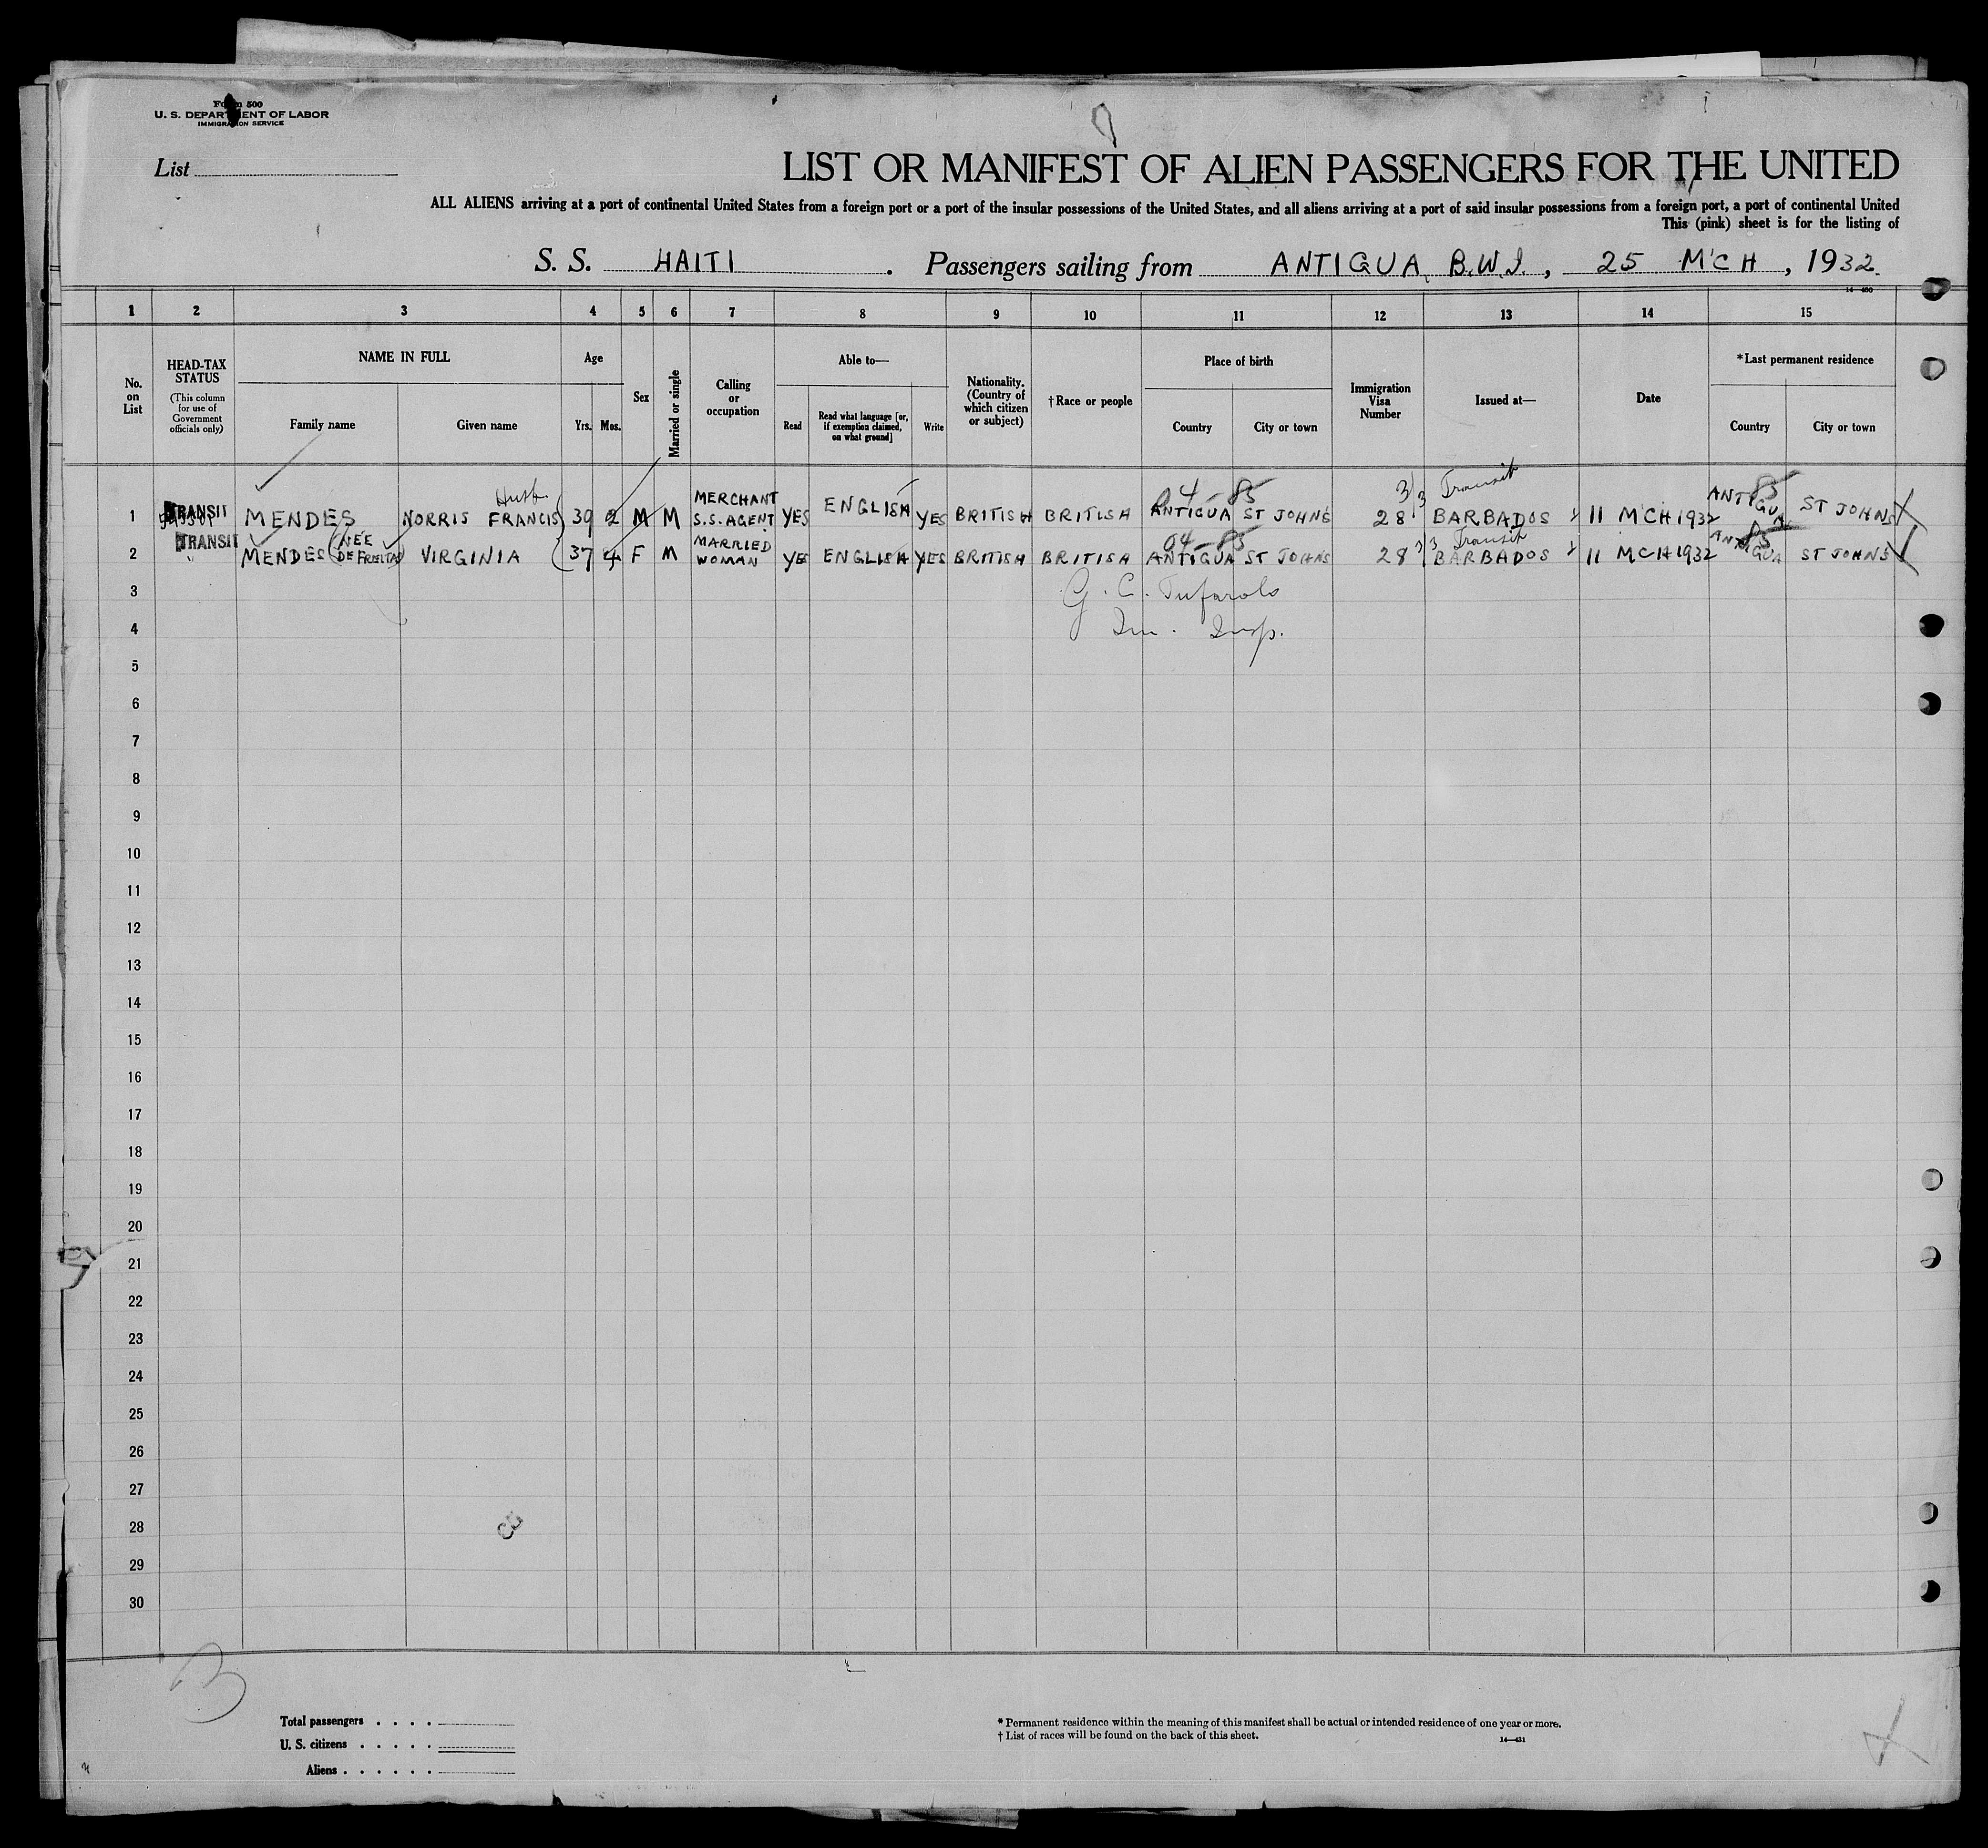 Form 500
U. S. DEPARTMENT OF LABOR
IMMIGRATION SERVICE
List
LIST OR MANIFEST OF ALIEN PASSENGERS FOR THE UNITED
ALL ALIENS arriving at a port of continental United States from a foreign port or a port of the insular possessions of the United States, and all aliens arriving at a port of said insular possessions from a foreign port, a port of continental United
This (pink) sheet is for the listing of
S. S. HAITI . Passengers sailing from ANTIGUA B.W.I. , 25 M'CH , 1932.
14—430
1 2 3 4 5 6 7 8 9 10 11 12 13 14 15
No. on List
HEAD-TAX STATUS
(This column for use of Government officials only)
NAME IN FULL
Family name
Given name
Age
Yrs. Mos.
Sex
Married or single
Calling or occupation
Able to—
Read
Read what language [or, if exemption claimed, on what ground]
Write
Nationality. (Country of which citizen or subject)
†Race or people
Place of birth
Country
City or town
Immigration Visa Number
Issued at—
Date
*Last permanent residence
Country
City or town
1 TRANSIT MENDES NORRIS FRANCIS 39 2 M M MERCHANT S.S. AGENT YES ENGLISH YES BRITISH BRITISH ANTIGUA ST JOHNS 28 Transit BARBADOS 11 MCH 1932 ANTIGUA ST JOHNS
2 TRANSIT MENDES (NEE DE FREITAS) VIRGINIA 37 4 F M MARRIED WOMAN YES ENGLISH YES BRITISH BRITISH 04-85 ANTIGUA ST JOHNS 28 Transit BARBADOS 11 MCH 1932 85 ANTIGUA ST JOHNS
3 G. C.
4 Im. Insp.
5
6
7
8
9
10
11
12
13
14
15
16
17
18
19
20
21
22
23
24
25
26
27
28
29
30
3
Total passengers . . . .
U. S. citizens . . . . .
Aliens . . . . . .
* Permanent residence within the meaning of this manifest shall be actual or intended residence of one year or more.
† List of races will be found on the back of this sheet.
14—431